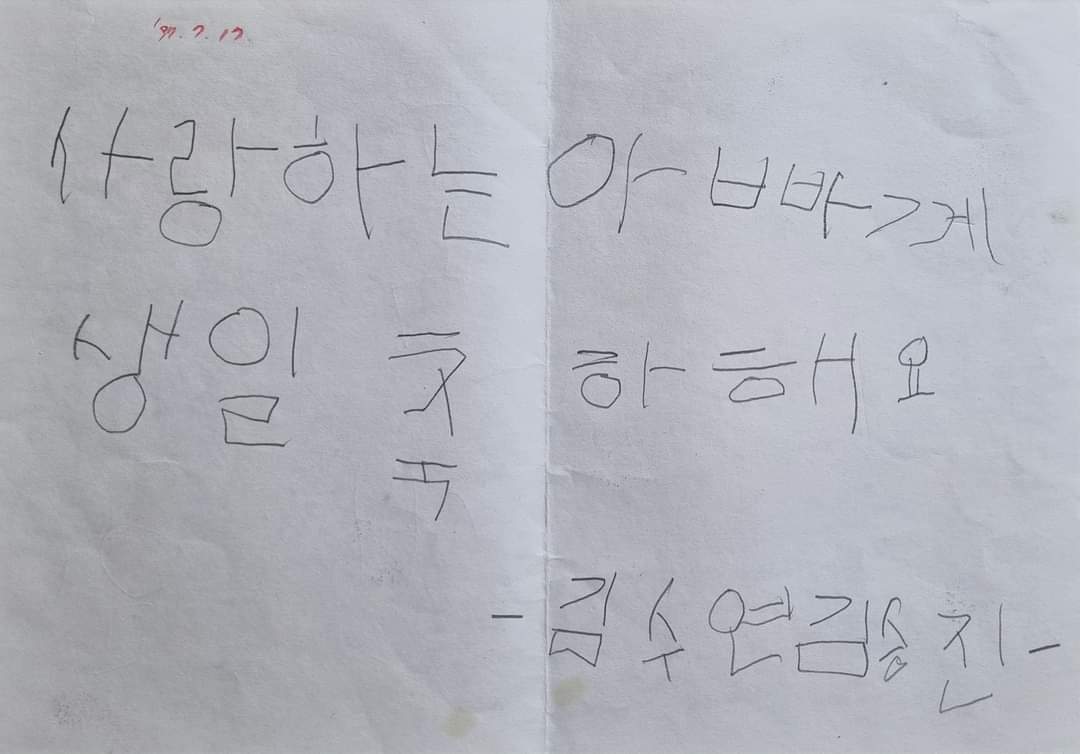 '97. 7. 17.
사랑하는 아빠께
생일 축하해요
- 김수연김승진 -